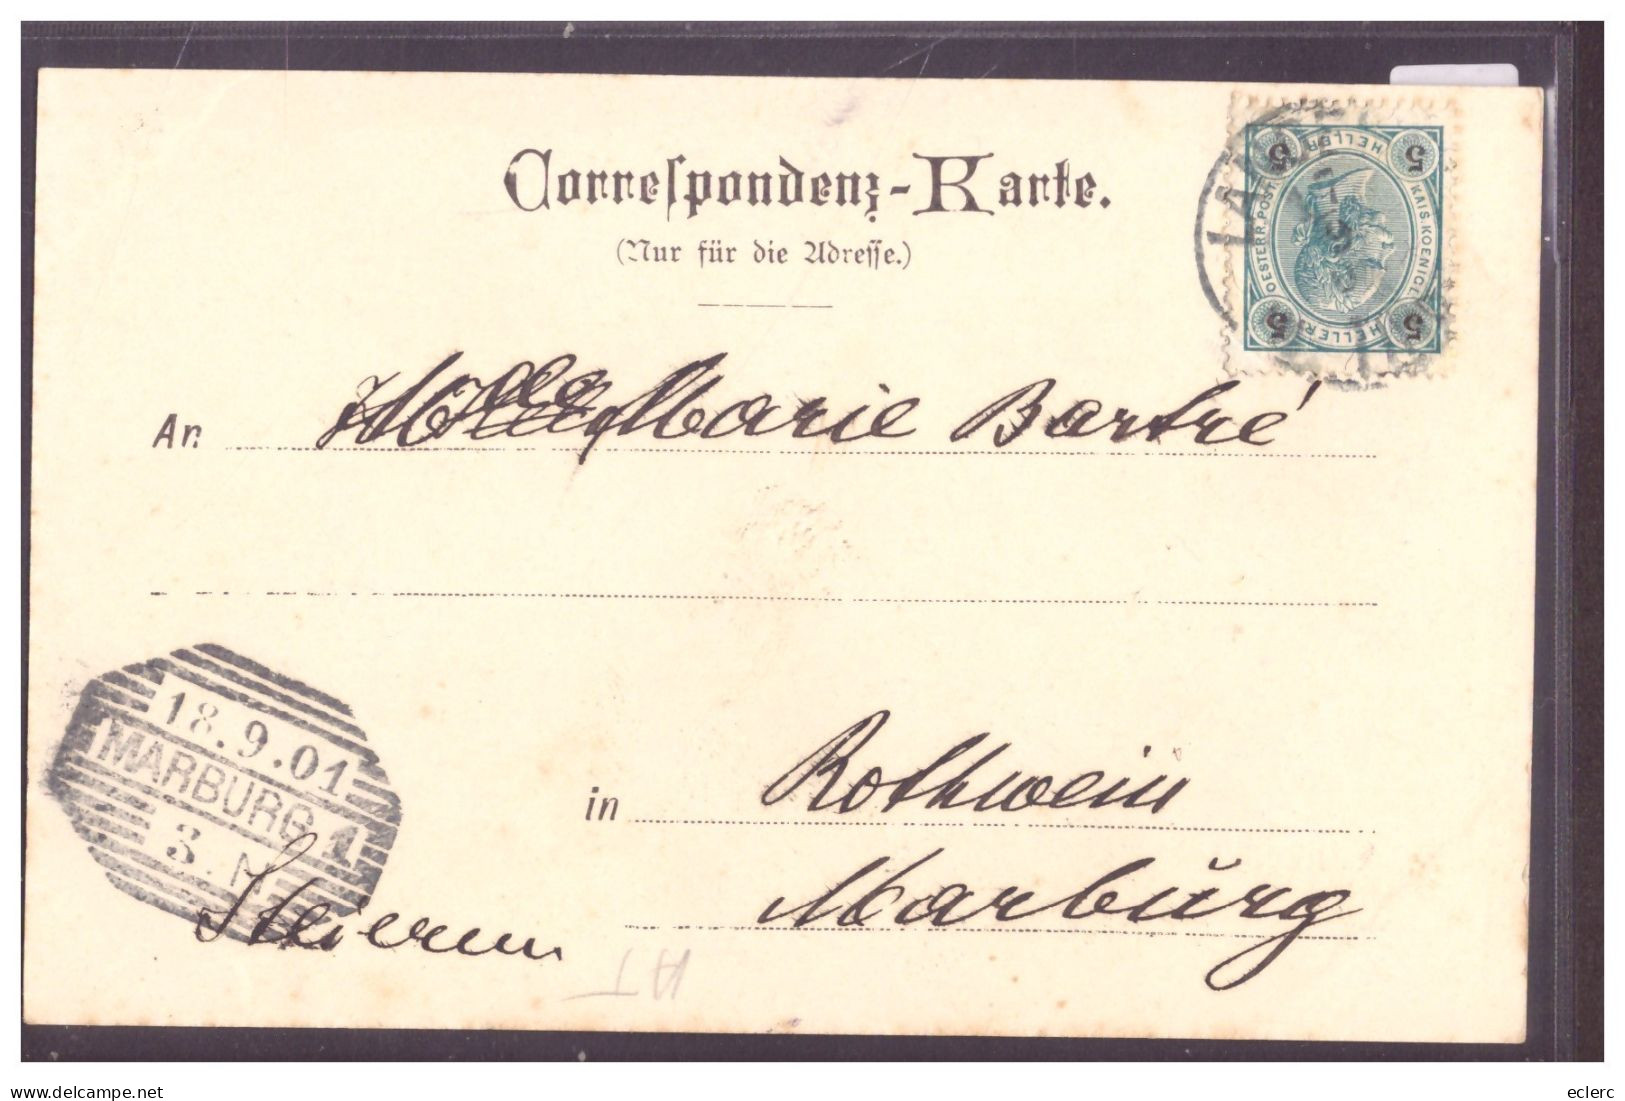 Correspondenz-Karte.
(Nur für die Adresse.)
5 HELLER 5
OESTERR. POST KAIS. KOENIGL.
5 HELLER 5
An Marie Bartré
18.9.01
MARBURG 1
3. N
in Rothwein
Marburg
AT
eclerc